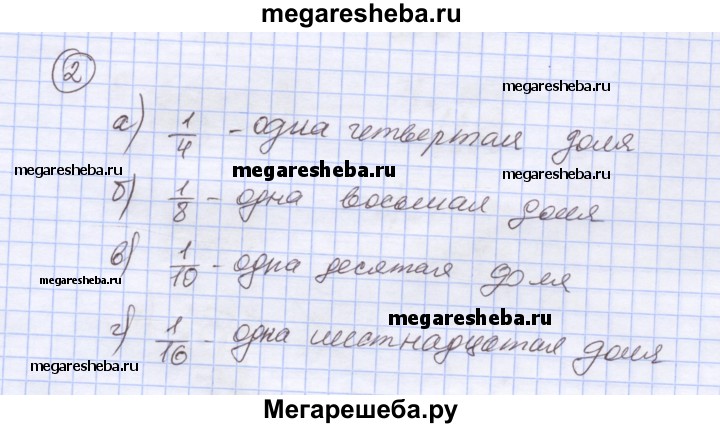 megaresheba.ru
2
megaresheba.ru
а) 1/4 - одна четвертая доля
megaresheba.ru
megaresheba.ru
megaresheba.ru
б) 1/8 - одна восьмая доля
в) 1/10 - одна десятая доля
megaresheba.ru
megaresheba.ru
г) 1/16 - одна шестнадцатая доля
megaresheba.ru
megaresheba.ru
Мегарешеба.ру